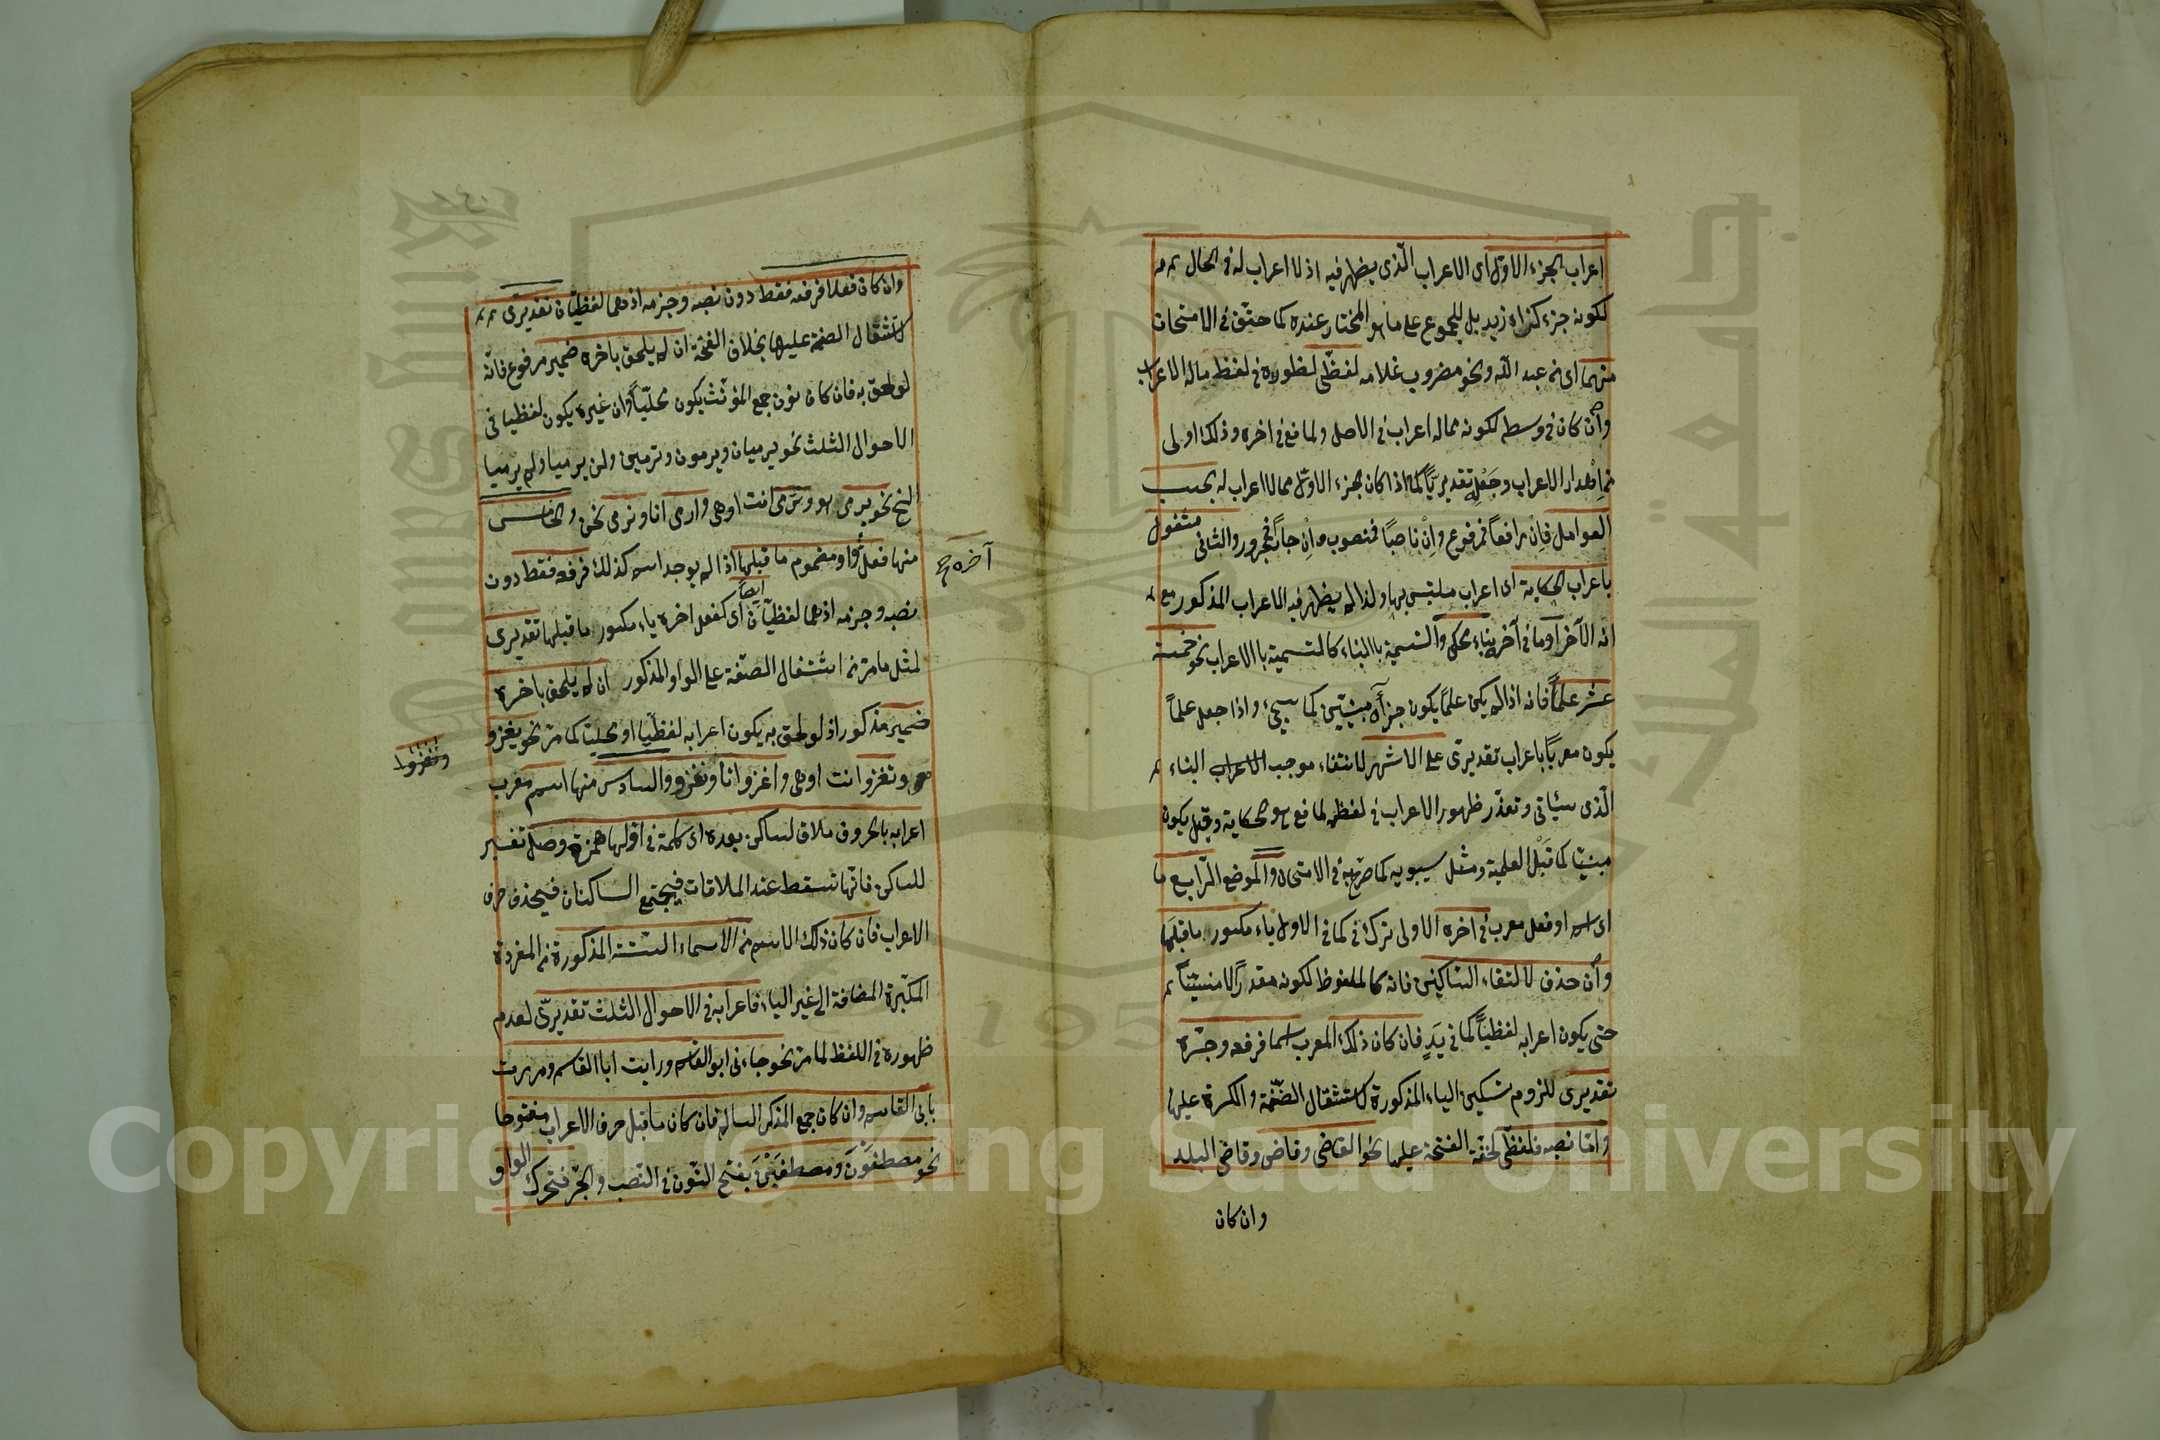 اعراب الجزء الاول اى الاعراب الّذى يظهر فيه اذ لا اعراب له فى الحال
لكونه جزء كزاء زيد بل للمجموع على ما هو المختار عنده كما حقّق فى الامتحان
منهما اى فى عبد اللّه ونحو مضروب غلامه لفظىّ لظهوره فى لفظ ماله الاعراب
وان كان فى وسطه لكونه مماله اعراب فى الاصل ولمانع فى اخره وذلك اولى
من اهدار الاعراب وجعله تقديريّا كما اذا كان الجزء الاول مما لا اعراب له بحسب
العوامل فان رافعاً فمرفوع وان ناصبًا فمنصوب وان جارًّا فمجرور والثانى مشغول
باعراب الحكاية اى اعراب ملتبس بها ولذا لم يظهر فيه الاعراب المذكور مع
انه الآخر او ما فى آخره بناء محكى والتسمية بالبناء كالتسمية بالاعراب نحو خمسة
عشر علماً فانه اذا لم يكن علماً يكون جزآه مبنيّين كما سيجئ واذا جعل علماً
يكون معربًا باعراب تقديرى على الاشهر لانتفاء موجب الاعراب البناء
الّذى سيأتى وتعذّر ظهور الاعراب فى لفظه لمانع هو الحكاية وقيل يكون
مبنيّا كما قبل العلمية ومثل سيبويه كما صرّح به فى الامتحان والموضع الرّابع ما
اى اسم او فعل معرب فى اخره الاولى ترك فى كما فى الاول ياء مكسور ما قبلها
وان حذف لالتقاء الساكنين فانه كالملفوظ لكونه مقدراً لا منسيّاً
حتى يكون اعرابه لفظيّاً كما فى يد فان كان ذلك المعرب اسما فرفعه وجرّه
تقديرى للزوم تسكين الياء المذكورة لاستثقال الضّمّة والكسرة عليها
وامّا نصبه فلفظىّ لخفّة الفتحة عليها نحو القاضى وقاض وقاضى البلد
وان كان
وان كان فعلا فرفعه فقط دون نصبه وجزمه اذ هما لفظيّان تقديرى
لاستثقال الضمة عليها بخلاف الفتحة ان لم يلحق باخره ضمير مرفوع فانّه
لو لحق به فان كان نون جمع المؤنّث يكون محليّاً وان غيره يكون لفظيا فى
الاحوال الثلث نحو يرميان ويرمون وترمين ولن يرميا ولم يرميا
الخ نحو يرمى هو وترمى انت او هى وارمى انا ونرمى نحن والخامس
منها فعل آخره واو مضموم ما قبلها اذا لم يوجد اسم كذلك فرفعه فقط دون
نصبه وجزمه اذ هما لفظيّان ايضاً اى كفعل اخره ياء مكسور ما قبلها تقديرى
لمثل ما مرّ من استثقال الضّمّة على الواو المذكور ان لم يلحق باخره
ضمير مذكور اذ لو لحق به يكون اعرابه لفظيّا او محليّا كما مرّ نحو يغزو
هو وتغزو انت او هى واغزو انا ونغزو والسادس منها اسم معرب
اعرابه بالحروف ملاق لساكن بعده اى كلمة فى اوّلها همزة وصل تفسير
للساكن فانّها تسقط عند الملاقات فيجتمع الساكنان فيحذف حرف
الاعراب فان كان ذلك الاسم من الاسماء الستّة المذكورة من المفردة
المكبّرة المضافة الى غير الياء فاعرابه فى الاحوال الثلث تقديرىّ لعدم
ظهوره فى اللفظ لما مرّ نحو جاءنى ابو القاسم ورايت ابا القاسم ومررت
بابى القاسم وان كان جمع المذكر السالم فان كان ما قبل حرف الاعراب مفتوحا
نحو مصطفَوْنَ ومصطفَيْنَ بفتح النّون فى النّصب والجرّ فتحرك الواو